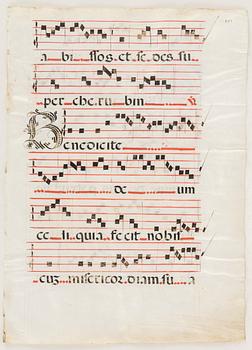 a bis sos. et se des su
per che ru bin
Benedicite
de um
ce li quia fe cit nobis
cuz misericor diam su a